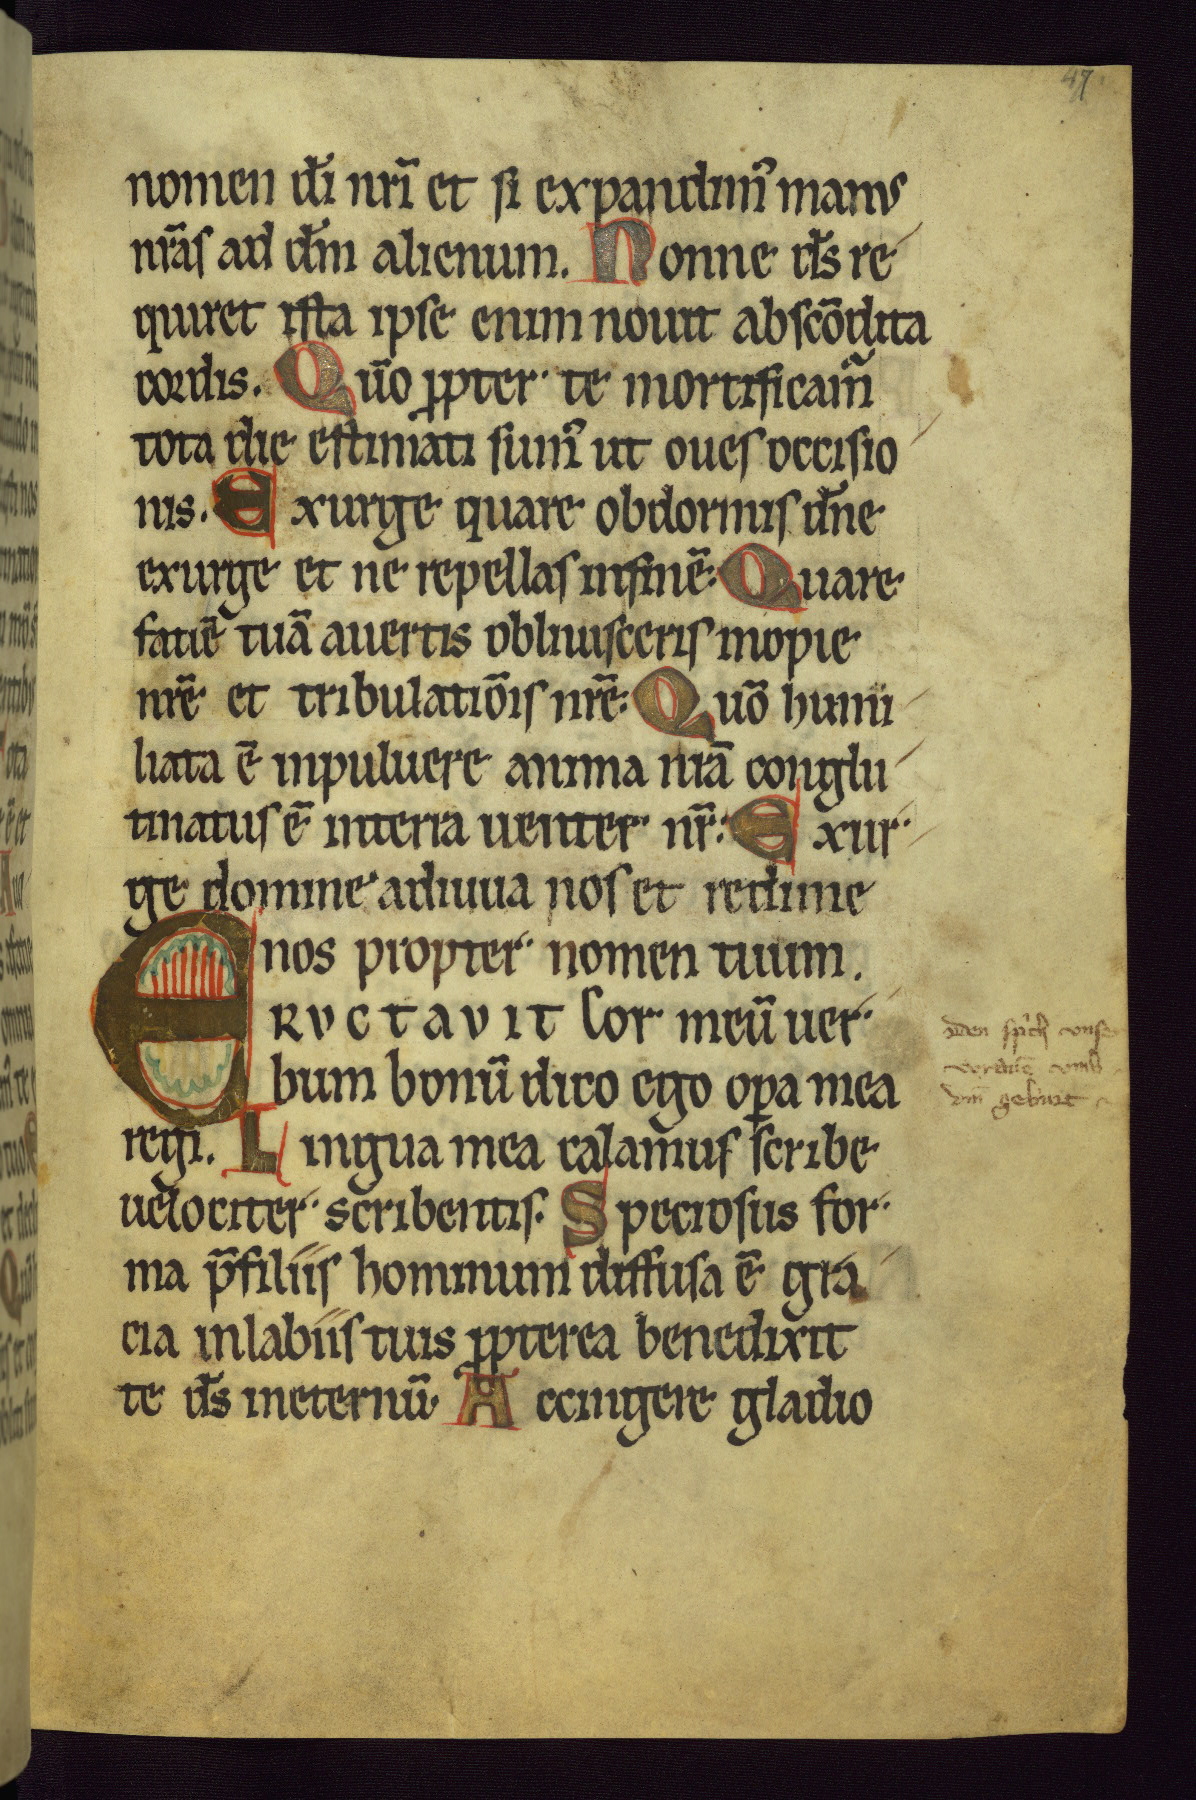 47
nomen dı̄ nrī et si expandim᷒ manus
nrās ad dm̄ alienum. Nonne ds̄ re
quiret ista ipse enim nouit abscōdita
cordis. Quō ꝓpter te mortificam̄
tota die estimati sum᷒ ut oues occisio
nis. Exurge quare obdormis dn̄e
exurge et ne repellas infinē. Quare
faciē tuā auertis obliuisceris inopie
nrē et tribulatiōis nrē. Quō humi
liata ē inpuluere anima nrā conglu
tinatus ē interra uenter nr̄. Exur
ge domine adiuua nos et redime
nos propter nomen tuum.
ERVCTAVIT Cor meū uer
bum bonū dico ego oꝑa mea
regi. Lingua mea calamus scribe
uelociter scribentis. Speciosus for
ma p̄filiis hominum diffusa ē gra
cia inlabiis tuis ꝓpterea benedixit
te ds̄ ineternū. Accingere gladio
den
geburt